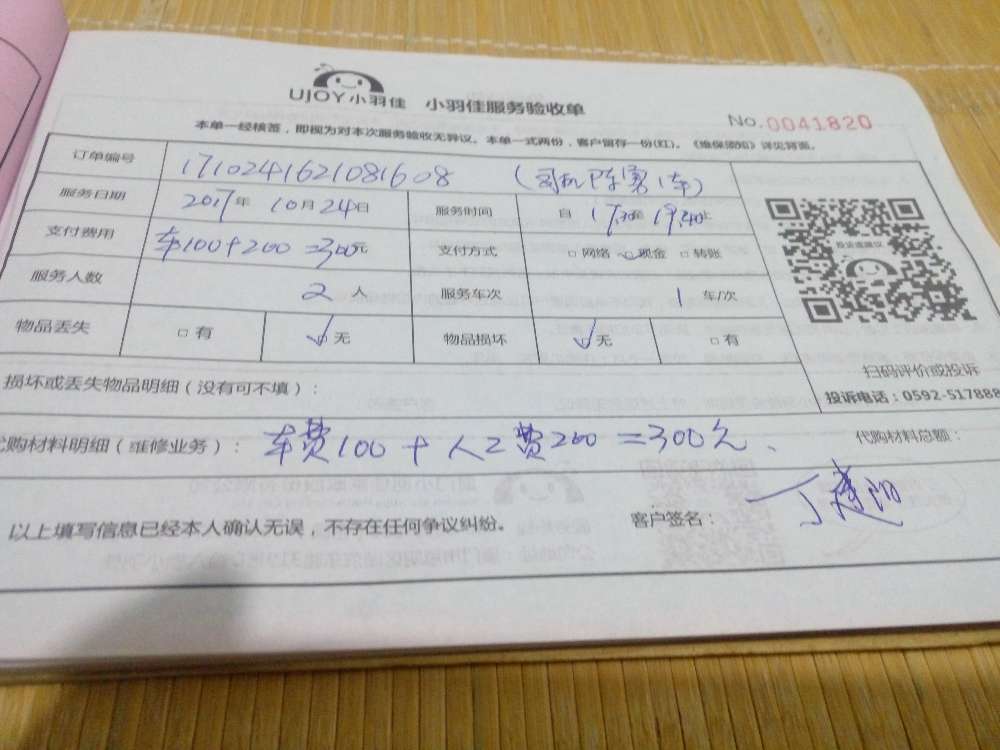 UJOY小羽佳 小羽佳服务验收单
No.0041820
本单一经核签，即视为对本次服务验收无异议。本单一式两份，客户留存一份(红)。《维保须知》详见背面。
订单编号 17102416210816 08 (司机陈 1车)
服务日期 2017年 10月 24日 服务时间 自 17:30至 19:40止
支付费用 车100+200=300元 支付方式 □网络 现金 □转账
服务人数 2人 服务车次 1车/次
物品丢失 □有 √无 物品损坏 √无 □有
投诉或建议
扫码评价或投诉
投诉电话：0592-517888
损坏或丢失物品明细（没有可不填）：
代购材料明细（维修业务）： 车费100+人工费200=300元、 代购材料总额：
以上填写信息已经本人确认无误，不存在任何争议纠纷。 客户签名： 丁